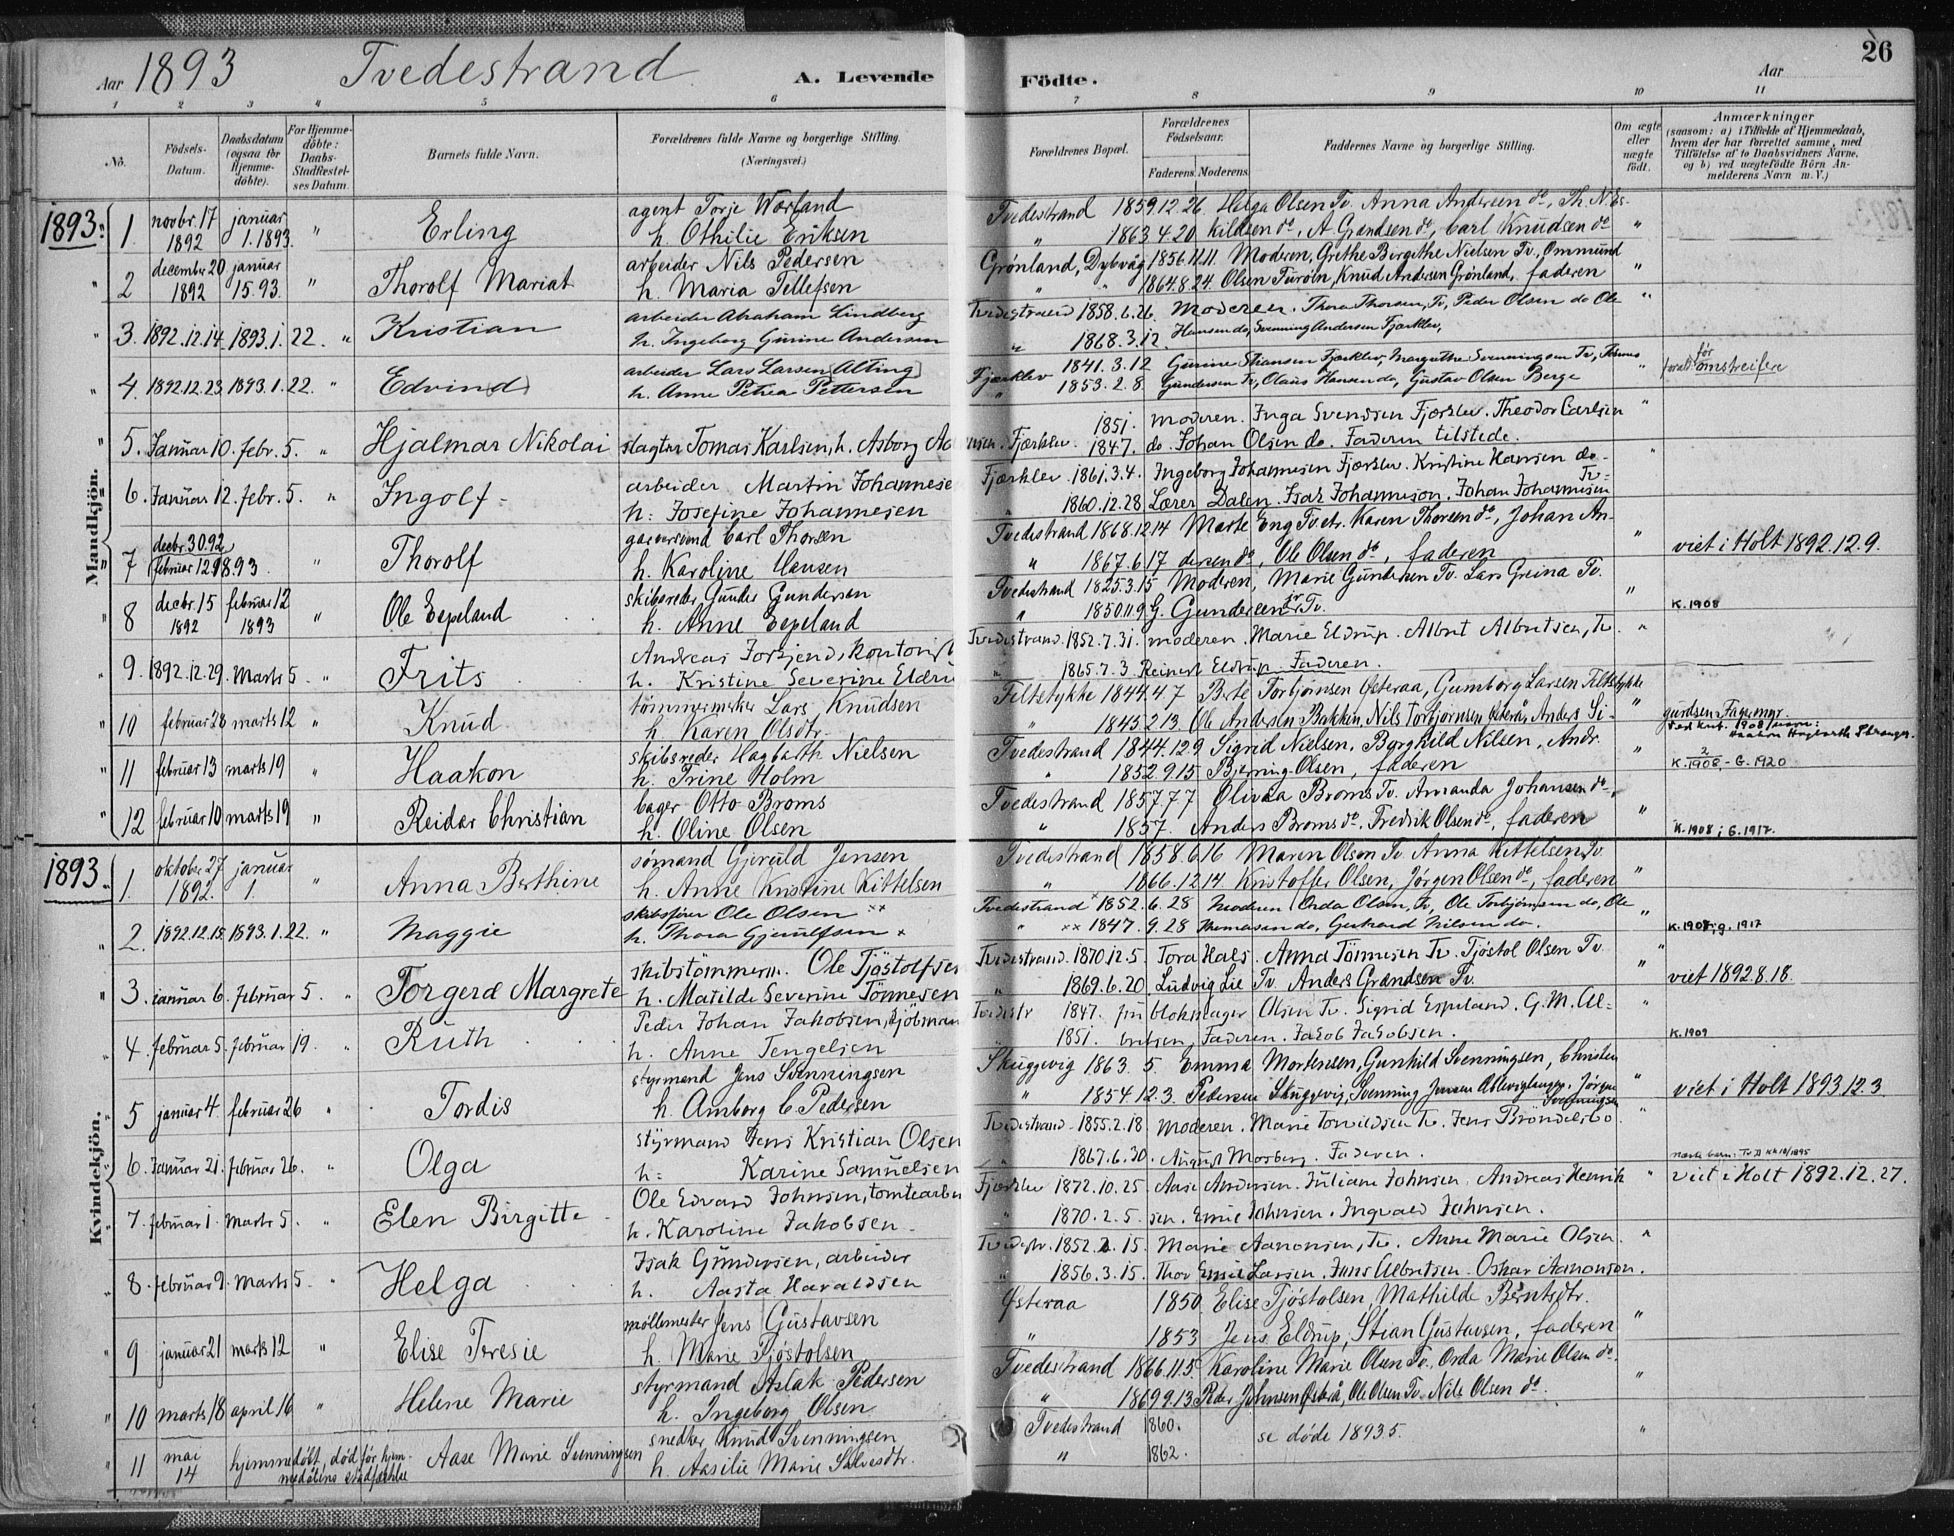 26
Aar 1893 Tvedestrand A. Levende Födte. Aar
1 2 3 4 5 6 7 8 9 10 11
No.
Födsels-Datum.
Daabsdatum (ogsaa for Hjemme-döbte).
For Hjemme-döbte: Daabs-Stadfæstel-ses Datum.
Barnets fulde Navn.
Forældrenes fulde Navne og borgerlige Stilling.
(Næringsvei.)
Forældrenes Bopæl.
Forældrenes Födselsaar.
Faderens. Moderens.
Faddernes Navne og borgerlige Stilling.
Om ægte eller uægte födt.
Anmærkninger
(saasom: a) i Tilfælde af Hjemmedaab, hvem der har forrettet samme, med Tilföielse af to Daabsvidners Navne, og b) ved uægtefödte Börn An-melderens Navn m. V.)
Mandkjön.
1893 1 novbr. 17 1892 januar 1. 1893 " Erling agent Torje Worland Tvedestrand 1859.12.26 Helga Olsen Tv. Anna Andersen do, Th. N. Es-
h. Othilie Eriksen " 1863 4 20 kildsen do, A. Gandsen do, Carl Knudsen do "
" 2 december 20 1892 januar 15. 93. " Thorolf Mariat arbeider Nils Pedersen Grönland, Dybvåg 1856.12.11. Moderen, Grethe Birgethe Nielsen Tv., Ommund
h. Maria Tellefsen " " 1864.8.24. Olsen Furöen, Knud Andersen Grönland, faderen "
" 3. 1892.12.14. 1893.1.22. " Kristian arbeider Abraham Lindberg Tvedestrand 1858.6.26. Moderen. Thora Thorsen, Tv, Peder Olsen do Ole "
h. Ingeborg Gurine Andersen " 1868.3.12. Hansen do, Svenning Andersen Fjærklev,
" 4. 1892.12.23. 1893.1.22. " Edvind arbeider Lars Larsen (Alting) Fjærklev 1841.3.12 Gurine Stiansen Fjærklev, Margrethe Svenningsen Tv, Thomas för omstreifere
h. Anne Petrea Pettersen " 1853.2.8. Gundersen Tv, Olaus Hansen do, Gustav Olsen Berge "
" 5. Januar 10. febr. 5. " Hjalmar Nikolai slagter Tomas Karlsen, h. Asborg Aa nsen. Fjærklev. 1851. moderen. Inga Svendsen Fjærklev. Theodor Carlsen "
1847. do. Johan Olsen do. Faderen tilstede.
" 6. Januar 12. febr. 5. " Ingolf arbeider Martin Johannese Fjærklev 1861.3.4. Ingeborg Johannesen Fjærklev. Kristine Hansen do. "
h: Josefine Johannesen " 1860.12.28 Lærer Dalen. Isak Johannesen. Johan Johannesen Tv.
" 7 decbr. 30.92 februar 12 1893. " Thorolf garversvend Carl Thorsen Tvedestrand 1868.12.14 Marte Eng Tvstr. Karen Thorsen do, Johan An-
h. Karoline Hansen " 1867.6.17 dersen do, Ole Olsen do, faderen viet i Holt 1892.12.9.
" 8 decbr. 15 1892 februar 12 1893 " Ole Espeland skibsreder Gunder Gundersen Tvedestrand 1825.3.15 Moderen, Marie Gundersen Tv. Lars Greina Tv.
h. Anne Espeland " 1850.11.9 G. Gundersen jr Tv. " K. 1908
" 9. 1892.12.29. Marts 5. " Frits Andreas Torkjend, kontorist Tvedestrand. 1852.7.31. moderen. Marie Eldrup. Albert Albertsen, Tv. "
h. Kristine Severine Eldru " 1865.7.3. Reinert Eldrup. Faderen.
" 10 februar 28 marts 12 " Knud tömmermester Lars Knudsen Feltstykke 1844.4.7 Berte Torbjörnsen Österaa, Gunborg Larsen Feltstykke
h. Karen Olsdtr. " 1845 2 13. Ole Andersen Bakken, Nils Torbjörnsen Österå, Anders Si- " gurdsen Fagermyr.
" 11 februar 13 marts 19 " Haakon skibsreder Hagbarth Nielsen Tvedestrand 1844.12.9 Sigrid Nielsen, Borghild Nilsen, Andr.
h. Trine Holm " 1852 9 15 Bjerning Olsen, faderen " K. 1908. - G. 1920
" 12 februar 10 marts 19 " Reidar Christian bager Otto Broms Tvedestrand 1857.7.7 Olivaa Broms Tv. Amanda Johansen do.
h. Oline Olsen " 1857. Anders Broms do. Fredrik Olsen do. faderen " K. 1908; G. 1917.
Kvindekjön.
1893. 1. oktober 27 1892. januar 1. " Anna Berthine sömand Gjeruld Jensen Tvedestrand 1858.6.16 Maren Olsen Tv. Anna Kittelsen Tv
h. Anne Kristine Kittelsen " 1866.12.14 Kristoffer Olsen, Jörgen Olsen do, faderen "
" 2. 1892.12.15. 1893.1.22. " Maggie skibsförer Ole Olsen xx Tvedestrand x 1852.6.28 Moderen Orda Olsen, Tv, Ole Torbjörnsen do, Ole
h. Thora Gjerulfsen x " xx 1847.9.28 Thomassen do, Gerhard Nilsen do. " K. 1908; g. 1917
" 3. januar 6. februar 5. " Torgerd Margrete skibstömmerm. Ole Tjöstolfsen Tvedestrand. 1870.12.5. Tora Hals. Anna Tönnesen Tv. Tjöstol Olsen Tv "
h. Matilde Severine Tönnesen " 1869.6.20 Ludvig Lie Tv. Anders Grændsen Tv. " viet 1892.8.18.
" 4. februar 5. februar 19. " Ruth Peder Johan Jakobsen, kjöbman Tvedestr 1847. fru blokmager Olsen Tv. Sigrid Espeland. G. M. Al- "
h. Anne Tengelsen " 1851. bretsen, Faderen. Jakob Jakobsen. K. 1909
" 5 januar 4. februar 26 " Tordis styrmand Jens Svenningsen Skuggevig 1863.5. Emma Mortensen, Gunhild Svenningsen, Christen
h. Amborg C Pedersen " 1854 12.3. Pedersen Skuggevig, Svenning Jensen, Jörgen Svenningsen " viet i Holt 1893.12.3.
" 6. Januar 21. februar 26. " Olga styrmand Jens Kristian Olsen Tvedestrand. 1855.2.18. moderen. Marie Tomildsen Tv. Jens Bröndelsbo. "
h: Karine Samuelsen " 1867.6.30. August Mosberg. Faderen.
" 7. februar 1. Marts 5. " Elen Birgitte Ole Edvard Johnsen, tomtearb Fjærklev 1872.10.25 Aase Andersen. Juliane Johnsen. Andreas Henrik " viet i Holt 1892.12.27.
h. Karoline Jakobsen. " 1870.2.5. sen. Emil Johnsen. Ingvald Johnsen.
" 8. februar 9. Marts 5. " Helga Isak Gundersen, arbeider Tvedestr. 1852.2.15. Marie Aanonsen, Tv. Anne Marie Olsen. "
h. Aasta Haraldsen " 1856.3.15. Thor Emil Larsen. Jens Albretsen. Oskar Aanonson.
" 9 januar 21 marts 12 " Elise Teresie möllemester Jens Gustavsen Österaa 1850 Elise Tjöstolsen, Mathilde Berntsdtr.
h. Marie Tjöstolsen " 1853 Jens Eldrup, Stian Gustavsen, faderen "
" 10 marts 18 april 16 " Helene Marie styrmand Aslak Pedersen Tvedestrand 1866.11.5 Karoline Marie Olsen Tv, Orda Marie Olsen do.
h. Ingeborg Olsen " 1869 9.13 Peder Johnsen Österå, Ole Olsen Tv. Nils Olsen do. "
" 11 mai 14 hjemmedöbt, död för hjem-medåbens stadfæstelse Aase Marie Svenningsen snedker Knud Svenningsen Tvedestrand 1860. se döde 1893 5. "
h. Aasilie Marie Salvesdtr. " 1862.